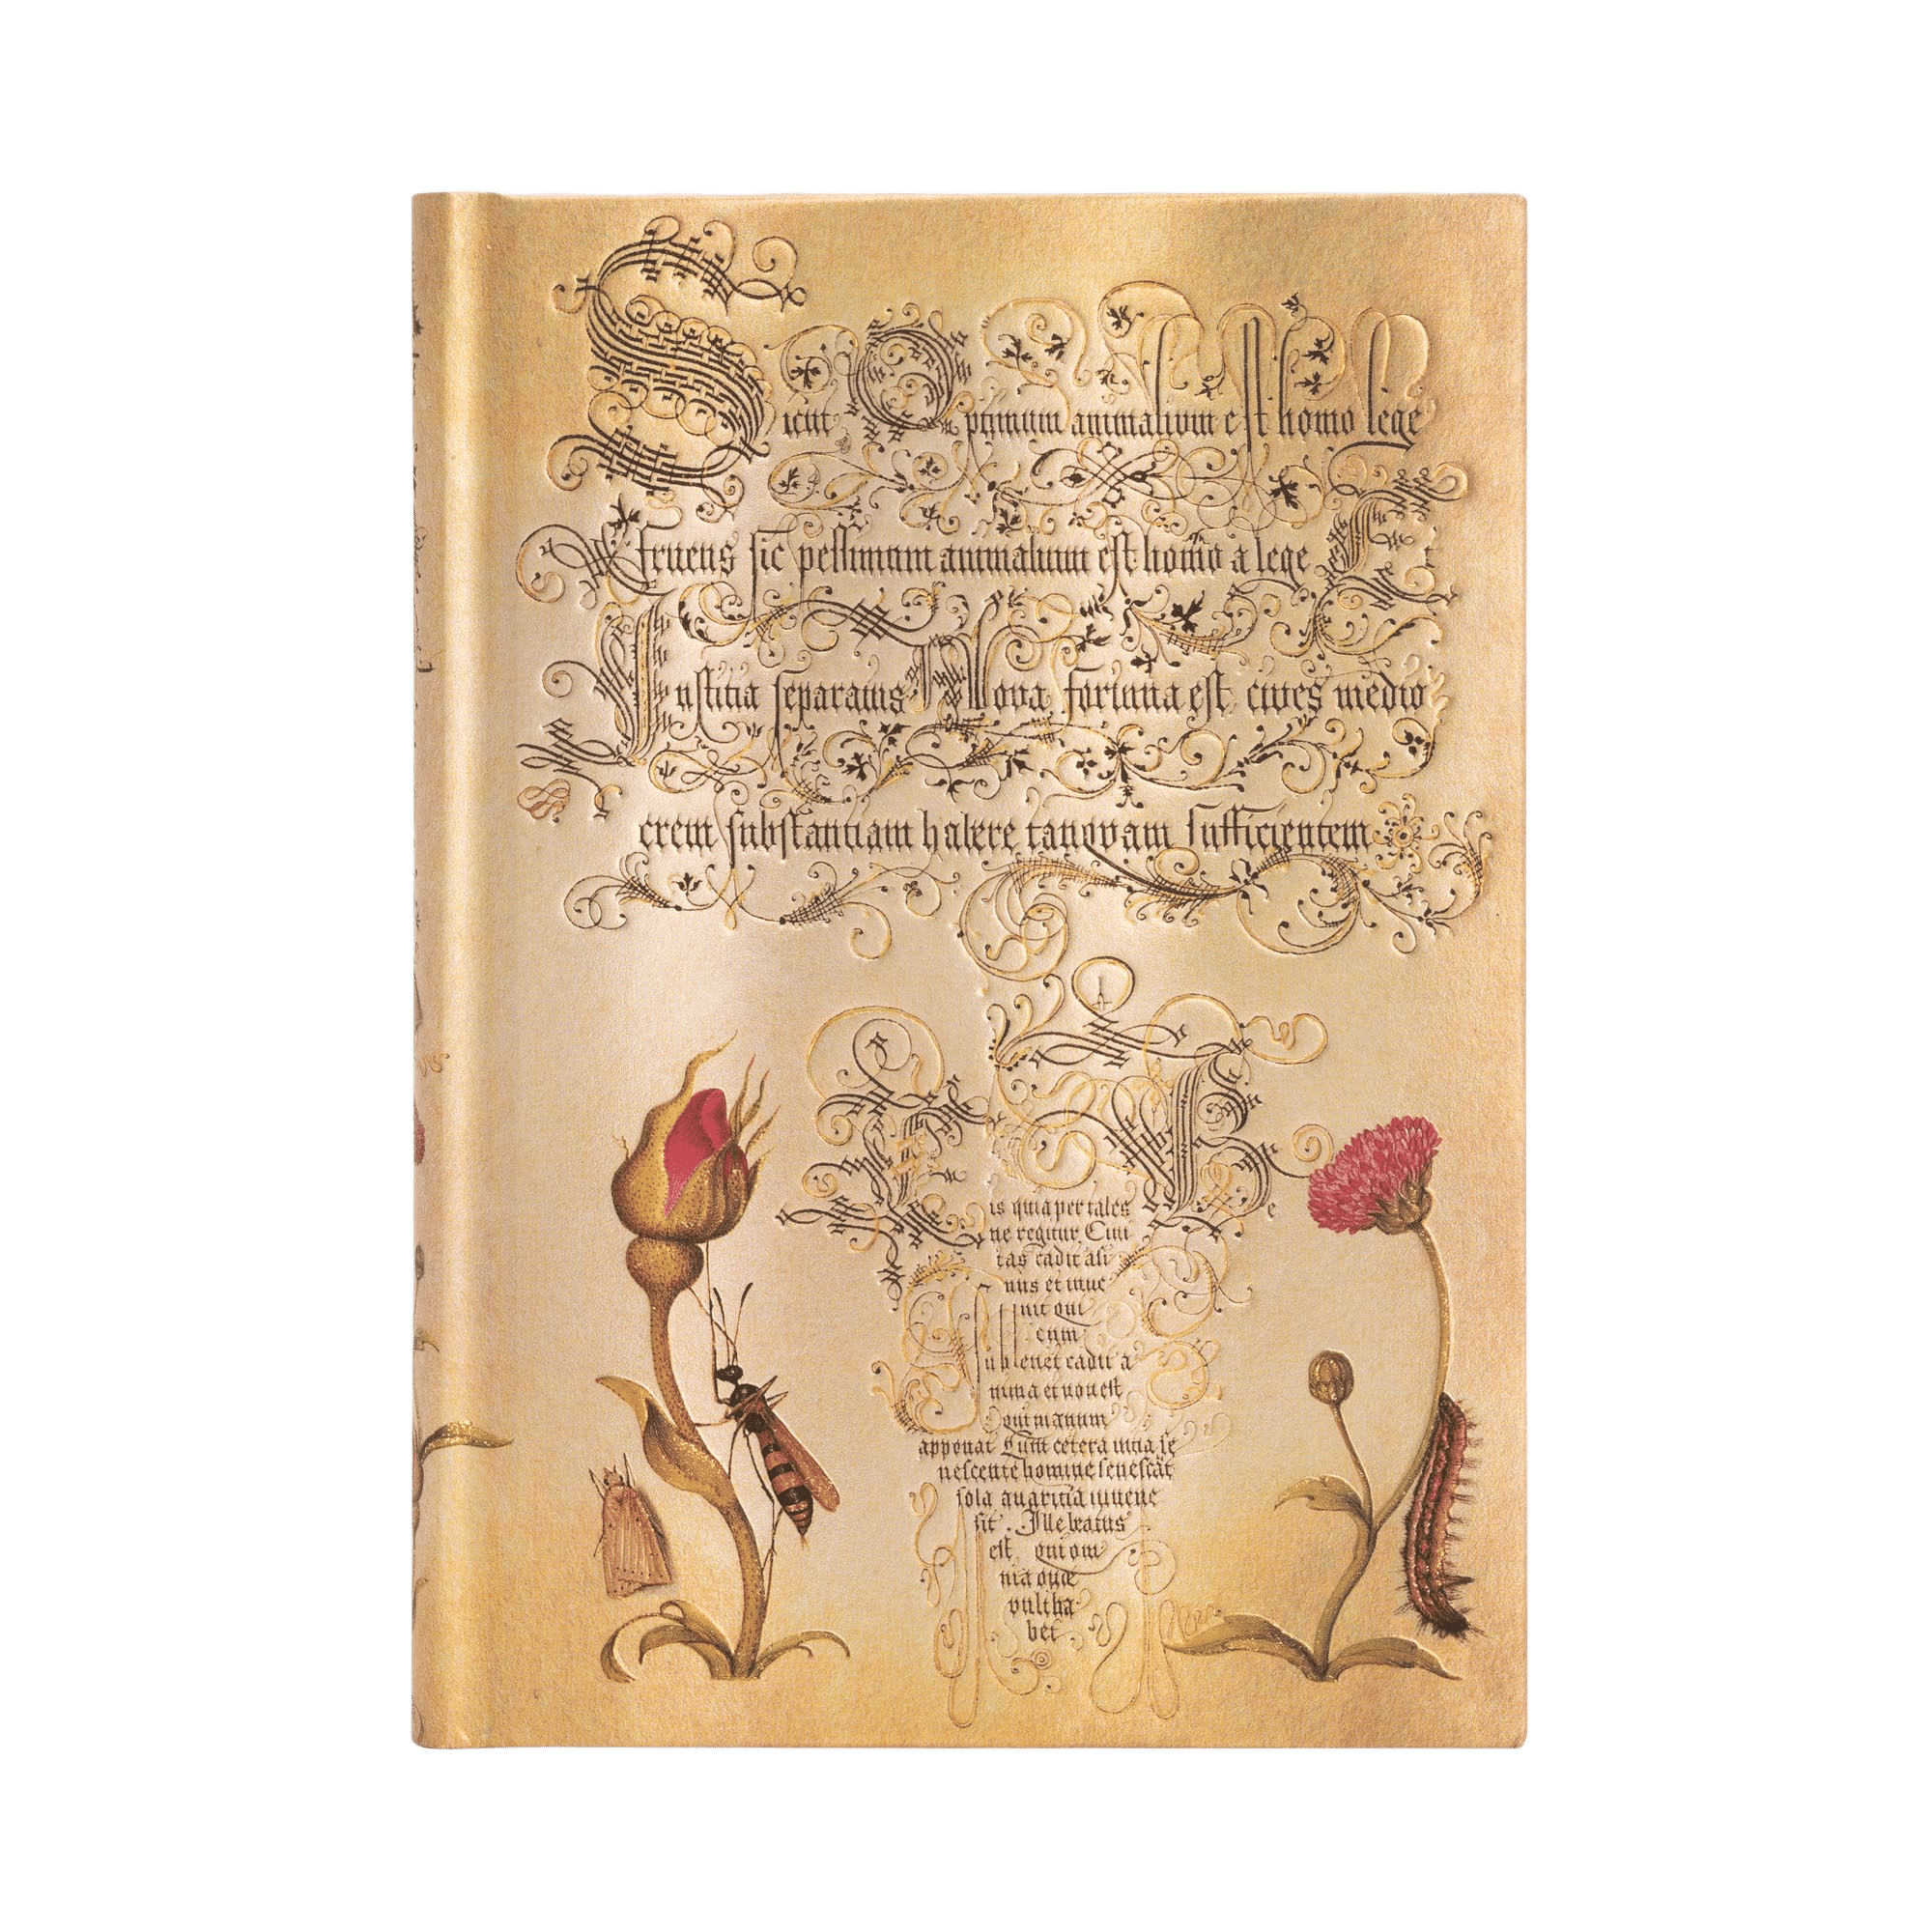 Sicut Optimum animalium est homo lege
fruens sic pessimum animalium est homo a lege Et
Iustitia separatus. Bona fortuna est cives medio
crem substantiam habere tanquam sufficientem
is quia per tales
ne regitur Civi
tas cadit asi
nus et inue
nit qui
cum
subleuet cadit a
nima et non est
qui manum
apponat Cum cetera uitia se
nescente homine senescāt
sola auaritia iuuene
sit. Ille beatus
est qui om
nia quæ
uult ha
bet